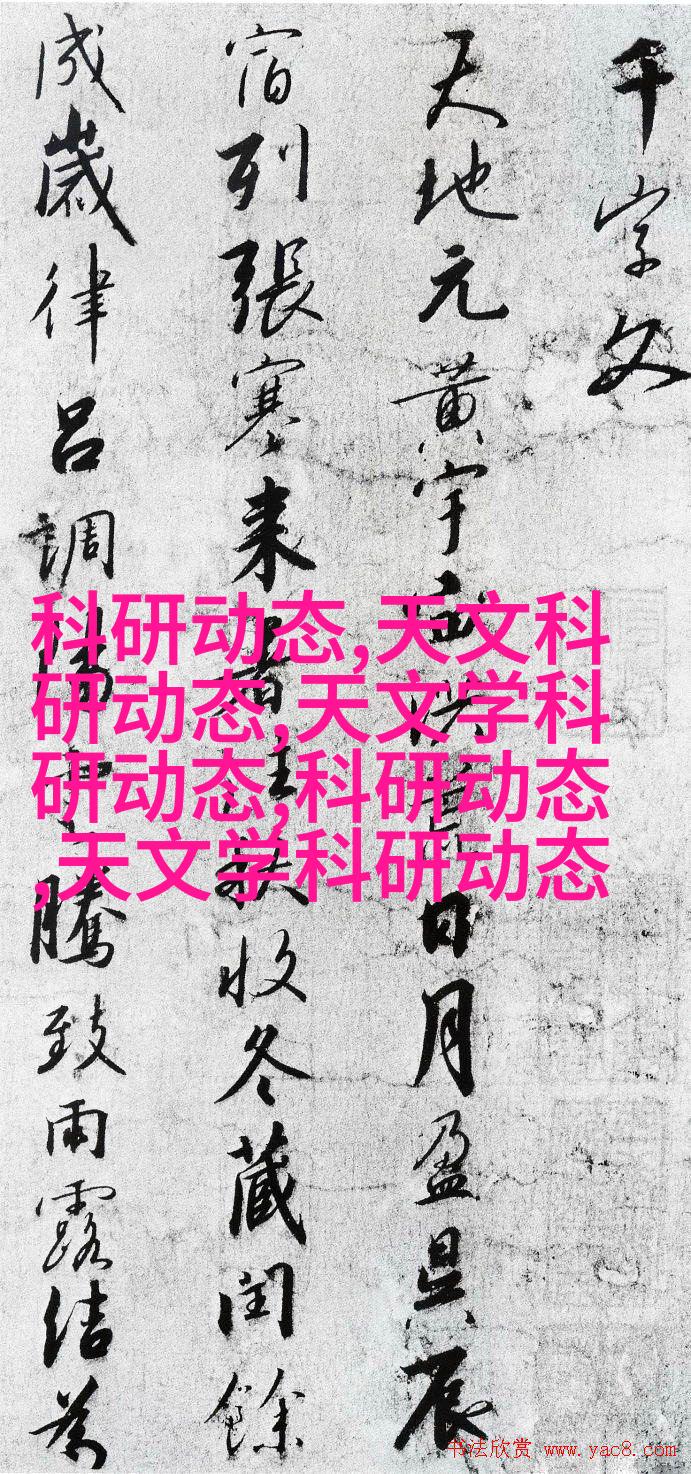 千字文
天地元黄宇宙洪荒日月盈昃辰
宿列張寒来暑往秋收冬藏閏餘
成歲律呂調陽雲騰致雨露結為
科研动态,天文科
研动态,天文学科
研动态,科研动态
,天文学科研动态
书法欣赏 www.yac8.com